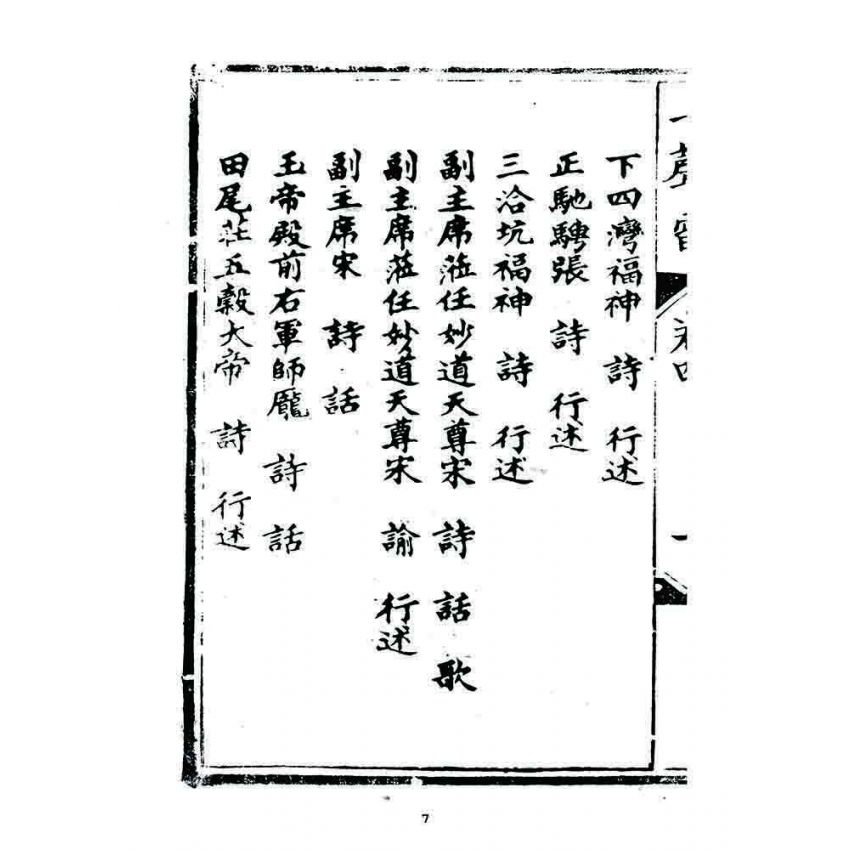 下四灣福神 詩 行述
正馳騁張 詩 行述
三洽坑福神 詩 行述
副主席蒞任妙道天尊宋 詩 話 歌
副主席蒞任妙道天尊宋 諭 行述
副主席宋 詩 話
玉帝殿前右軍師龎 詩 話
田尾莊五穀大帝 詩 行述
7